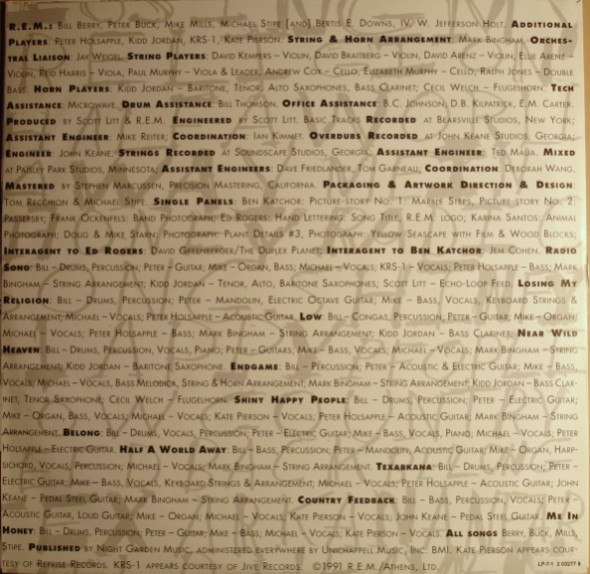 R.E.M.: Bill Berry, Peter Buck, Mike Mills, Michael Stipe [and] Bertis E. Downs, IV, W. Jefferson Holt. Additional
Players: Peter Holsapple, Kidd Jordan, KRS-1, Kate Pierson. String & Horn Arrangement: Mark Bingham. Orches-
tral Liaison: Jay Weigel. String Players: David Kempers – Violin, David Braitberg – Violin, David Arenz – Violin, Ellie Arenz –
Violin, Reid Harris – Viola, Paul Murphy – Viola & Leader, Andrew Cox – Cello, Elizabeth Murphy – Cello, Ralph Jones – Double
Bass. Horn Players: Kidd Jordan – Baritone, Tenor, Alto Saxophones, Bass Clarinet; Cecil Welch – Flugelhorn. Tech
Assistance: Microwave. Drum Assistance: Bill Thomson. Office Assistance: B.C. Johnson, D.B. Kilpatrick, E.M. Carter.
Produced by Scott Litt & R.E.M. Engineered by Scott Litt. Basic Tracks Recorded at Bearsville Studios, New York;
Assistant Engineer: Mike Reiter; Coordination: Ian Kimmet. Overdubs Recorded at John Keane Studios, Georgia;
Engineer: John Keane. Strings Recorded at Soundscape Studios, Georgia; Assistant Engineer: Ted Malia. Mixed
at Paisley Park Studios, Minnesota; Assistant Engineers: Dave Friedlander, Tom Garneau; Coordination: Deborah Wang.
Mastered by Stephen Marcussen, Precision Mastering, California. Packaging & Artwork Direction & Design:
Tom Recchion & Michael Stipe. Single Panels: Ben Katchor: Picture-Story No. 1. Marble Steps, Picture-Story No. 2.
Passersby; Frank Ockenfels: Band Photograph; Ed Rogers: Hand Lettering: Song Title, R.E.M. logo; Karina Santos: Animal
Photograph; Doug & Mike Starn: Photograph: Plant Details #3, Photograph: Yellow Seascape with Film & Wood Blocks;
Interagent to Ed Rogers: David Greenberger/The Duplex Planet; Interagent to Ben Katchor: Jem Cohen. Radio
Song: Bill – Drums, Percussion; Peter – Guitar; Mike – Organ, Bass; Michael – Vocals; KRS-1 – Vocals; Peter Holsapple – Bass; Mark
Bingham – String Arrangement; Kidd Jordan – Tenor, Alto, Baritone Saxophones; Scott Litt – Echo-Loop Feed. Losing My
Religion: Bill – Drums, Percussion; Peter – Mandolin, Electric Octave Guitar; Mike – Bass, Vocals, Keyboard Strings &
Arrangement; Michael – Vocals; Peter Holsapple – Acoustic Guitar. Low: Bill – Congas, Percussion; Peter – Guitar; Mike – Organ;
Michael – Vocals; Peter Holsapple – Bass; Mark Bingham – String Arrangement; Kidd Jordan – Bass Clarinet. Near Wild
Heaven: Bill – Drums, Percussion, Vocals, Piano; Peter – Guitars; Mike – Bass, Vocals; Michael – Vocals; Mark Bingham – String
Arrangement; Kidd Jordan – Baritone Saxophone. Endgame: Bill – Percussion; Peter – Acoustic & Electric Guitar; Mike – Bass,
Vocals; Michael – Vocals, Bass Melodica, String & Horn Arrangement; Mark Bingham – String Arrangement; Kidd Jordan – Bass Clar-
inet, Tenor Saxophone; Cecil Welch – Flugelhorn. Shiny Happy People: Bill – Drums, Percussion; Peter – Electric Guitar;
Mike – Organ, Bass, Vocals; Michael – Vocals; Kate Pierson – Vocals; Peter Holsapple – Acoustic Guitar; Mark Bingham – String
Arrangement. Belong: Bill – Drums, Vocals, Percussion; Peter – Electric Guitar; Mike – Bass, Vocals, Piano; Michael – Vocals; Peter
Holsapple – Electric Guitar. Half A World Away: Bill – Bass, Percussion; Peter – Mandolin, Acoustic Guitar; Mike – Organ, Harp-
sichord, Vocals, Percussion; Michael – Vocals; Mark Bingham – String Arrangement. Texarkana: Bill – Drums, Percussion; Peter –
Electric Guitar; Mike – Bass, Vocals, Keyboard Strings & Arrangement; Michael – Vocals; Peter Holsapple – Acoustic Guitar; John
Keane – Pedal Steel Guitar; Mark Bingham – String Arrangement. Country Feedback: Bill – Bass, Percussion, Vocals; Peter –
Acoustic Guitar, Loud Guitar; Mike – Organ; Michael – Vocals; Kate Pierson – Vocals; John Keane – Pedal Steel Guitar. Me In
Honey: Bill – Drums, Percussion; Peter – Guitar; Mike – Bass; Michael – Vocals; Kate Pierson – Vocals. All songs Berry, Buck, Mills,
Stipe. Published by Night Garden Music, administered everywhere by Unichappell Music, Inc. BMI. Kate Pierson appears cour-
tesy of Reprise Records. KRS-1 appears courtesy of Jive Records. ©1991 R.E.M./Athens, Ltd.